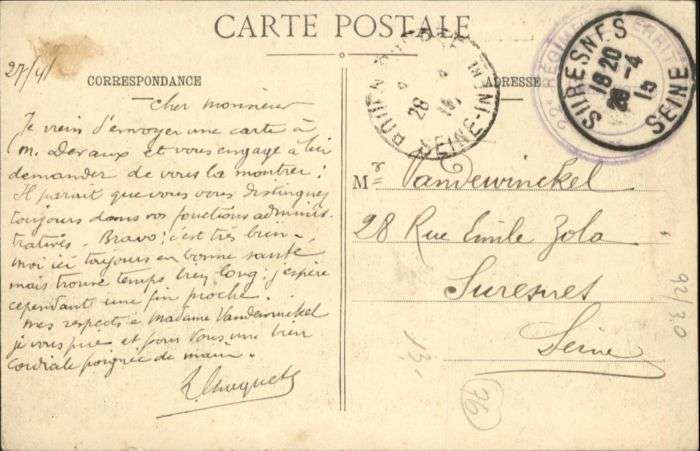 CARTE POSTALE
27/4/
CORRESPONDANCE
ADRESSE
Cher monsieur
Je viens d'envoyer une carte à
m. Devaux et vous engage à lui
demander de vous la montrer !
Il parait que vous vous distinguez
toujours dans vos fonctions adminis
tratives. Bravo ! c'est très bien.
moi ici toujours en bonne santé
mais trouve temps bien long : j'espère
cependant une fin proche.
mes respects à Madame Vandewinckel
je vous prie et pour vous une bien
cordiale poignée de main.
Mr Vandewinckel
28 Rue Emile Zola
Suresnes
Seine
ROUEN
28 4 15
SEINE-INF
SURESNES
18 20
28 -4
15
SEINE
22e REGIMENT TERRITO
92/30
13'
76